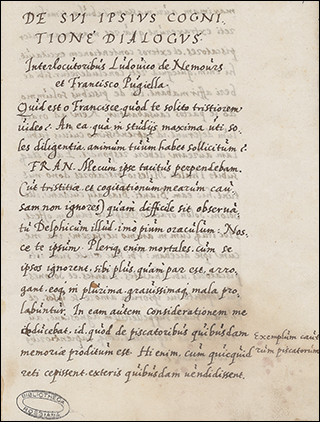 DE SVI IPSIVS COGNI
TIONE DIALOGVS
Interlocutoribus Ludouico de Nemours
et Francisco Pugiella.
Quid est o Francisce, quòd te solito tristiorem
uideo? An ea, quā in studijs maxima uti so-
les diligentia, animum tuum habet sollicitum?
FRAN. Mecum ipse tacitus perpendebam,
(ut tristitiæ, et cogitationum mearum cau
sam non ignores) quàm difficile sit obserua
tu Delphicum illud, imò pium oraculum: Nos
ce te ipsum. Pleriq enim mortales, cum se
ipsos ignorent, sibi plus, quàm par est, arro
gant. eoq in plurima, grauissimaq mala pro
labuntur. In eam autem considerationem me
adducebat, id, quod de piscatoribus quibusdam
memoriæ proditum est. Hi enim, cum quicquid
reti cepissent, exteris quibusdam uendidissent,
Exemplum
rum piscatorum
BIBLIOTHECA
ROSSIANA